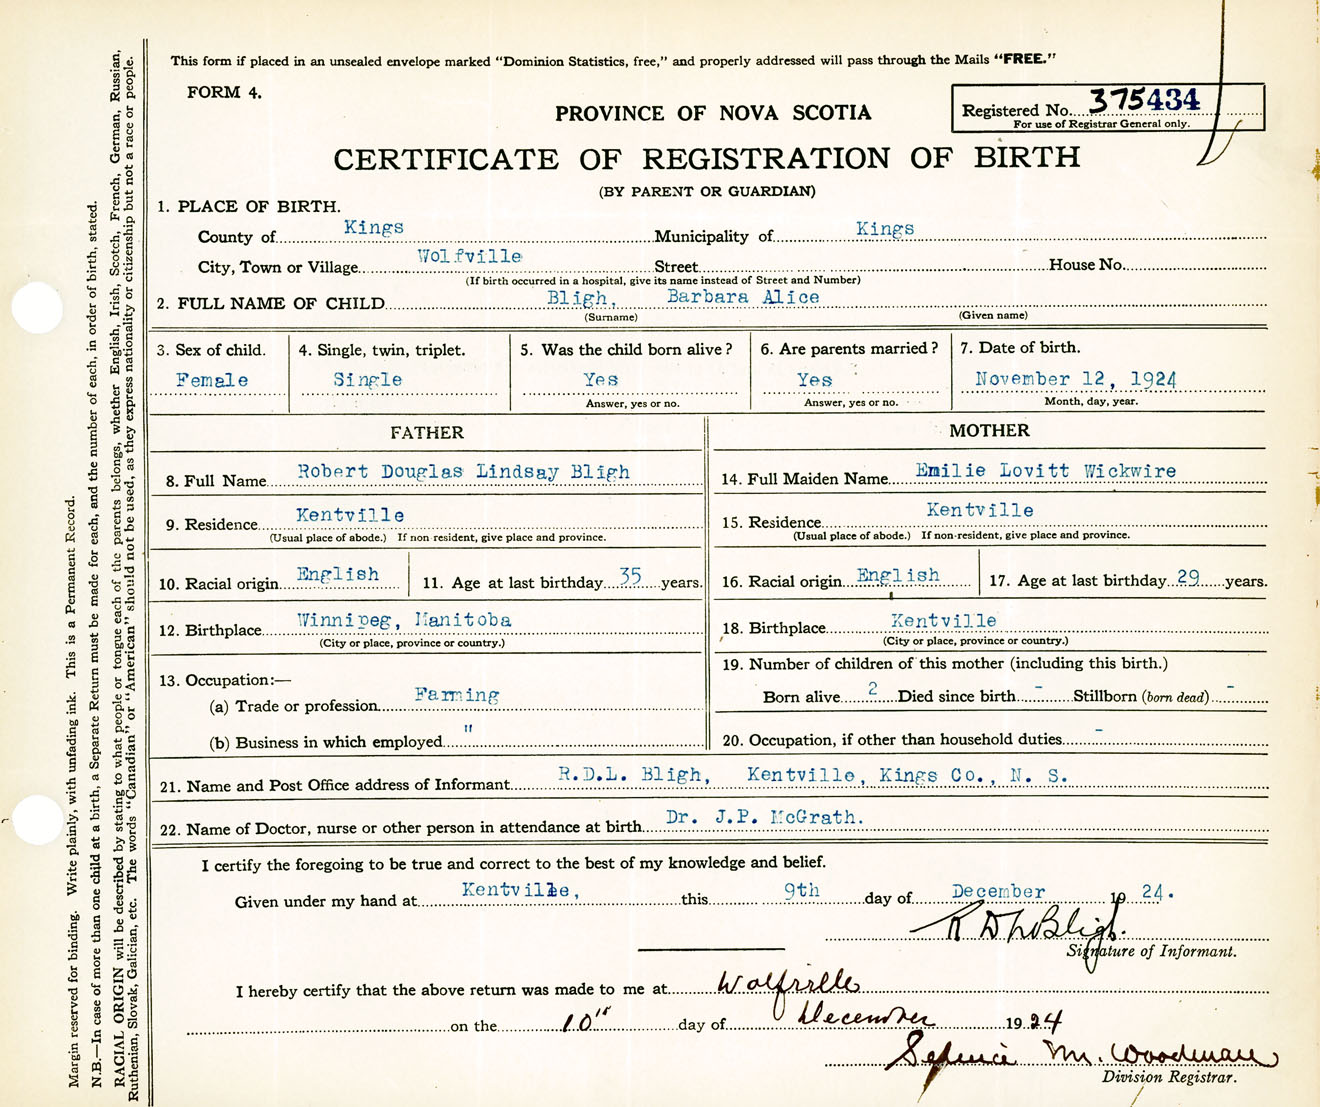 This form if placed in an unsealed envelope marked "Dominion Statistics, free," and properly addressed will pass through the Mails "FREE."
FORM 4.
PROVINCE OF NOVA SCOTIA
Registered No. 375434
For use of Registrar General only.
CERTIFICATE OF REGISTRATION OF BIRTH
(BY PARENT OR GUARDIAN)
1. PLACE OF BIRTH.
County of Kings Municipality of Kings
City, Town or Village Wolfville Street House No.
(If birth occurred in a hospital, give its name instead of Street and Number)
2. FULL NAME OF CHILD Bligh, Barbara Alice
(Surname) (Given name)
3. Sex of child. 4. Single, twin, triplet. 5. Was the child born alive? 6. Are parents married? 7. Date of birth.
Female Single Yes Yes November 12, 1924
Answer, yes or no. Answer, yes or no. Month, day, year.
FATHER MOTHER
8. Full Name Robert Douglas Lindsay Bligh 14. Full Maiden Name Emilie Lovitt Wickwire
9. Residence Kentville 15. Residence Kentville
(Usual place of abode.) If non-resident, give place and province. (Usual place of abode.) If non-resident, give place and province.
10. Racial origin English 11. Age at last birthday 35 years. 16. Racial origin English 17. Age at last birthday 29 years.
12. Birthplace Winnipeg, Manitoba 18. Birthplace Kentville
(City or place, province or country.) (City or place, province or country.)
13. Occupation:— 19. Number of children of this mother (including this birth.)
(a) Trade or profession Farming Born alive 2 Died since birth - Stillborn (born dead) -
(b) Business in which employed " 20. Occupation, if other than household duties -
21. Name and Post Office address of Informant R.D.L. Bligh, Kentville, Kings Co., N. S.
22. Name of Doctor, nurse or other person in attendance at birth Dr. J.P. McGrath.
I certify the foregoing to be true and correct to the best of my knowledge and belief.
Given under my hand at Kentville, this 9th day of December 19 24.
R D L Bligh.
Signature of Informant.
I hereby certify that the above return was made to me at Wolfville
on the 10" day of December 1924
M. Woodman
Division Registrar.
Margin reserved for binding. Write plainly, with unfading ink. This is a Permanent Record.
N.B.—In case of more than one child at a birth, a Separate Return must be made for each, and the number of each, in order of birth, stated.
RACIAL ORIGIN will be described by stating to what people or tongue each of the parents belongs, whether English, Irish, Scotch, French, German, Russian,
Ruthenian, Slovak, Galician, etc. The words "Canadian" or "American" should not be used, as they express nationality or citizenship but not a race or people.